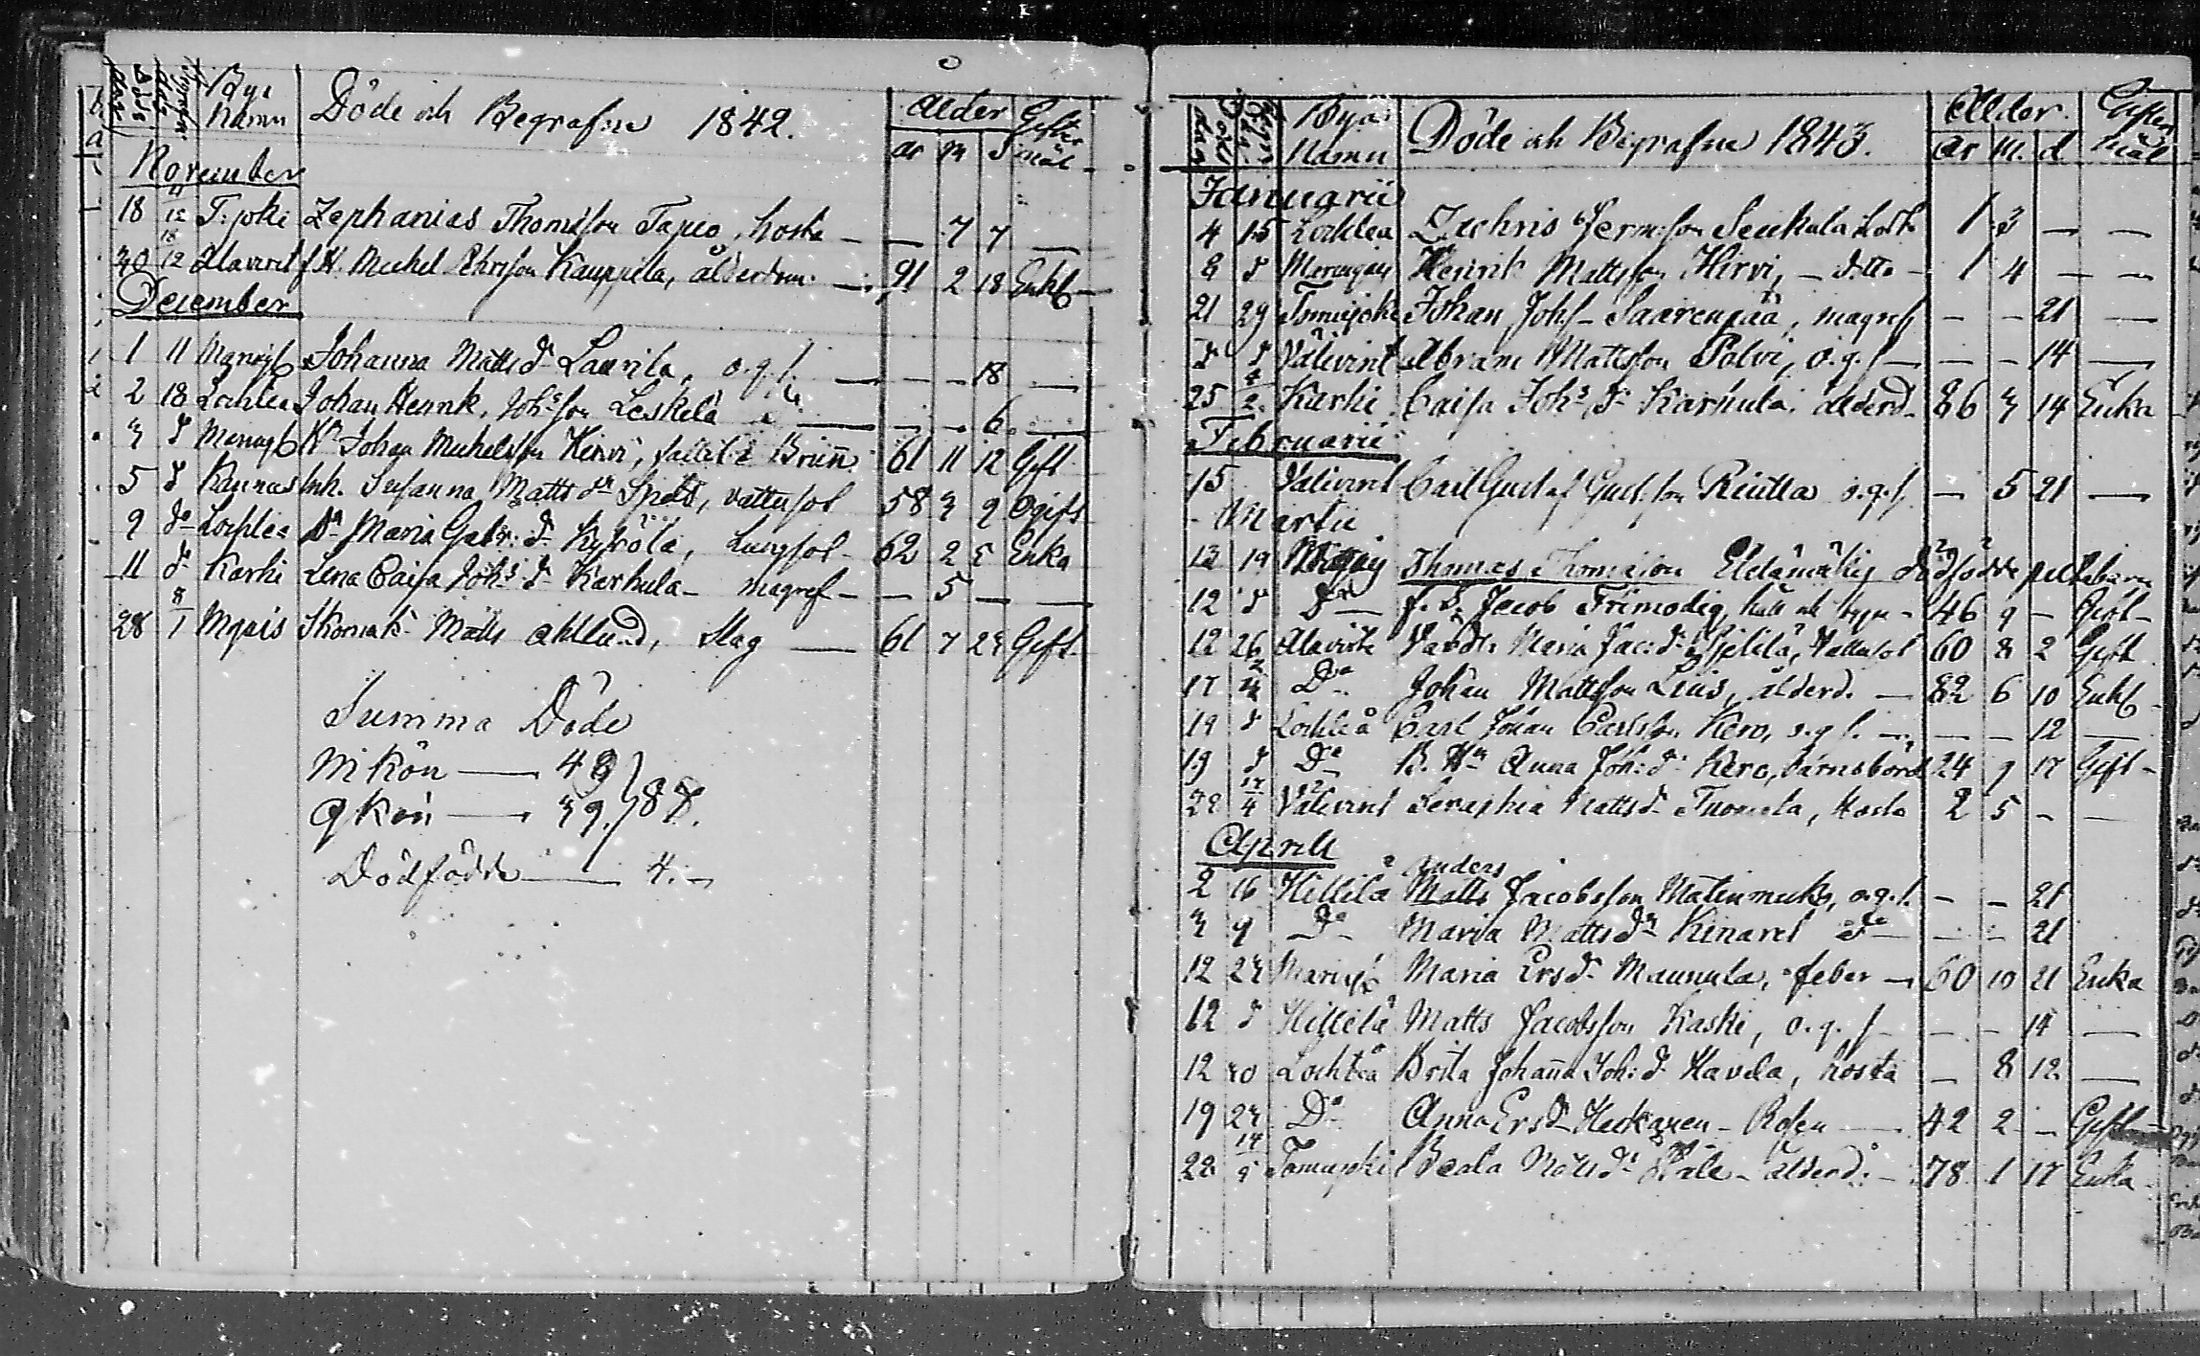 Döde dag Begrafne dag Bye Namn Döde och Begrafne 1842. alder Gifter mål
år m d
November
18 11/12 T:joki Zephanias Thomasson Tapio, hosta — — 7 7 —
30 18/12 Alavirt f.H. Michel Ehrsson Kauppila, ålderdom — 91 2 18 Enkl
December
1 11 Marinjk Johanna Matts dr Laurila, o.q.s. — — — 18 —
2 18 Lochteå Johan Henrik Johsson Leskelä do — — — 6 —
3 d Mariajk Johan Michelsson Hirvi, fallit i Brunn 61 11 12 Gift
5 d Kannus Inh. Susanna Matts dr, vattusot 58 3 9 Ogift
9 do Lochteå Maria Gabr: dr Kykölä, Lungsot 62 2 5 Enka
11 do Karhi Lena Caisa Johs dr Karhula magref — — 5 — —
28 8/1 Matts Ahlund, slag — 61 7 23 Gift
Summa Döde
m Kön — 49
q Kön — 39. } 88.
Dödfödde — 4.
Byas Namn Döde och Begrafne 1843. Ålder. Gifter mål
år m. d
Januarii
4 15 Lochteå Zachris Jeremson Seukula Host 1 3 — —
8 d Henrik Mattsson Hirvi, — ditto — 1 4 — —
21 29 Tomujoki Johan Johs Saarenpää, magref — — 21 —
d d Välivirt Abram Mattsson Polvi, o.q.s — — — 14 —
25 2 Karhi Caisa Johs dr Karhula, ålderd. 86 3 14 Enka
Februarii
15 Välivirt Carl Gustaf Gust:son o.q.s. — 5 21 —
Martii
13 19 Thomas Thomasson dödfödde
12 d Do f.d. Jacob Frimodig, håll och 46 9 — Gift
12 26 Alavirta Maria Jac: dr, Vattusot 60 8 2 Gift
17 Do Johan Mattsson Luis, ålderd. — 82 6 10 Enkl
19 d Lochteå Carl Johan Carlsson Kero, o.q.s. — — — 12 —
19 d Do Anna Joh: dr Kero, barnsbörd 24 9 17 Gift
22 17/4 Välivirt Seraphia Matts dr Tuomela, Hosta 2 5 — —
Aprill
Anders
2 16 Hillilä Matts Jacobsson Matinmicko, o.q.s. — — 21
3 9 Do Maria Matts dr Kinaret do — — 21
12 23 Marinjk Maria Ers dr Maunula, feber — 60 10 21 Enka
12 d Hillilä Matts Jacobsson Kaski, o.q.s — — 14 —
12 30 Lochteå Brita Johanna Joh: dr Havela, hosta — 8 12 —
19 23 Do Anna Ers dr — Rosen — 42 2 — Gift
22 14/5 Tomujoki Beata Matts dr Pale — ålderd: — 78 1 17 Enka